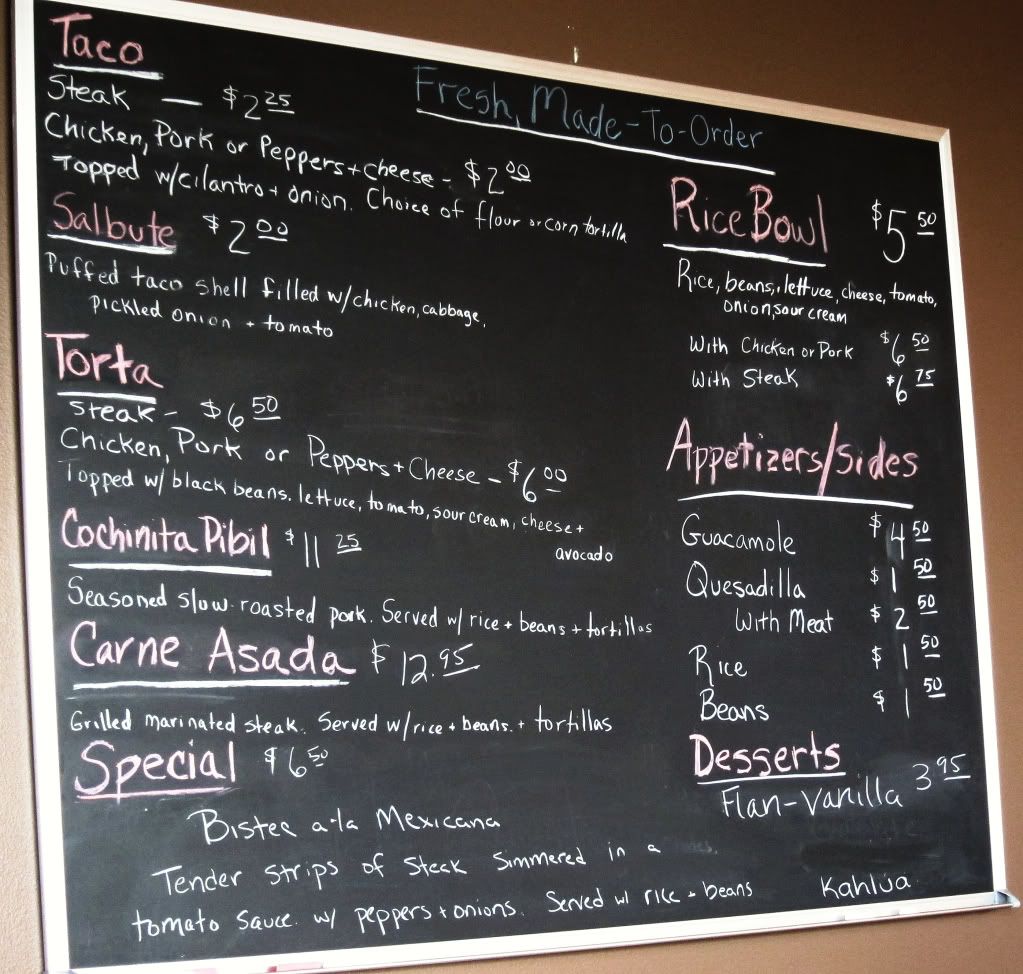 Fresh, Made-To-Order
Taco
Steak — $2.25
Chicken, Pork or Peppers + cheese - $2.00
Topped w/cilantro + onion. Choice of flour or corn tortilla
Salbute $2.00
Puffed taco shell filled w/chicken, cabbage,
pickled onion + tomato
Torta
Steak - $6.50
Chicken, Pork or Peppers + Cheese - $6.00
Topped w/black beans. lettuce, tomato, sour cream, cheese +
avocado
Cochinita Pibil $11.25
Seasoned slow-roasted pork. Served w/ rice + beans + tortillas
Carne Asada $12.95
Grilled marinated steak. Served w/rice + beans. + tortillas
Special $6.50
Bistec a-la Mexicana
Tender strips of Steak Simmered in a
tomato sauce. w/ peppers + onions. Served w/ rice + beans
Rice Bowl $5.50
Rice, beans, lettuce, cheese, tomato,
onion, sour cream
With Chicken or Pork $6.50
With Steak $6.75
Appetizers/Sides
Guacamole $4.50
Quesadilla $1.50
With Meat $2.50
Rice $1.50
Beans $1.50
Desserts
Flan-Vanilla 3.95
Kahlua